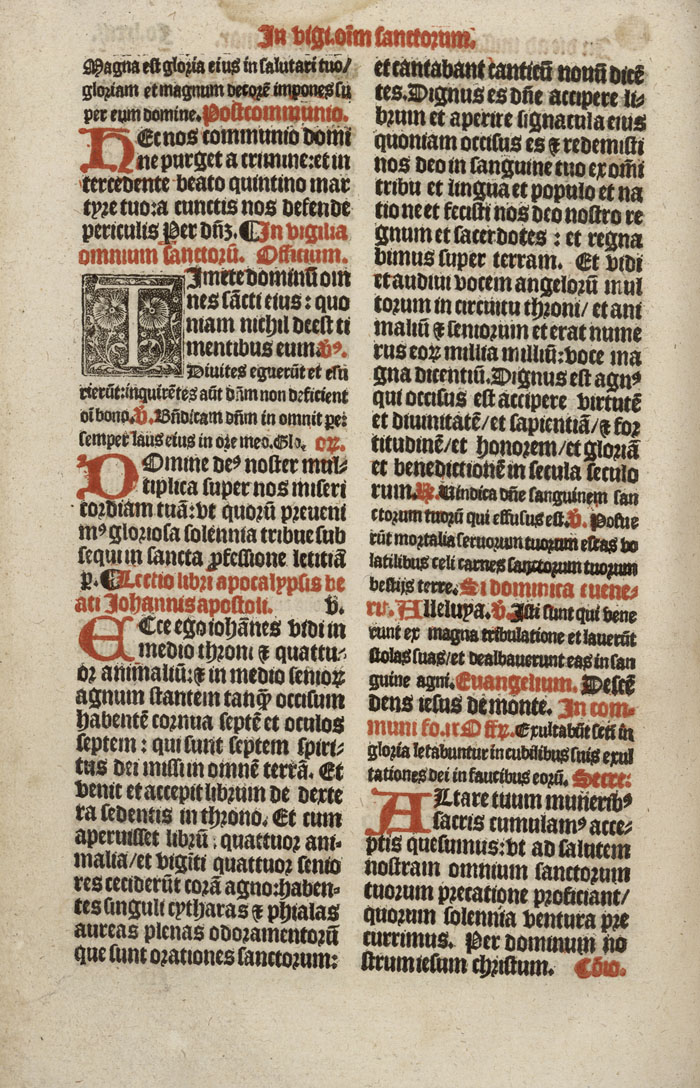 In vigi. oīm sanctorum.
Magna est gloria eius in salutari tuo/
gloriam et magnum decorē impones su
per eum domine. Postcommunio.
HEc nos communio domi
ne purget a crimine: et in
tercedente beato quintino mar
tyre tuo: a cunctis nos defende
periculis Per dn̄ꝫ. ¶ In vigilia
omnium sanctorū. Officium.
TImete dominū om
nes sācti eius: quo
niam nichil deest ti
mentibus eum. v̄s.
Divites eguerūt et esu
rierūt: inquirētes aūt dn̄m non deficient
oī bono. v̄. Bn̄dicam dn̄m in omni tꝑe:
semper laus eius in ore meo. Glo. oꝝ.
DOmine deꝰ noster mul-
tiplica super nos miseri
cordiam tuā: vt quorū preueni
mꝰ gloriosa solennia tribue sub
sequi in sancta ꝓfessione letitiā
ꝑ. ¶ Lectio libri apocalypsis be
ati Johannis apostoli. v.
ECce ego iohānes vidi in
medio throni ⁊ quattu-
or animaliū: ⁊ in medio senioꝝ
agnum stantem tanꝙ occisum
habentē cornua septē et oculos
septem: qui sunt septem spiri-
tus dei missi in omnē terrā. Et
venit et accepit librum de dexte
ra sedentis in throno. Et cum
aperuisset librū, quattuor ani-
malia/et vigīti quattuor senio
res ceciderūt corā agno: haben-
tes singuli cytharas ⁊ phialas
aureas plenas odoramentorū
que sunt orationes sanctorum:
et cantabant canticū nouū dicē
tes. Dignus es dn̄e accipere li-
brum et aperire signacula eius
quoniam occisus es ⁊ redemisti
nos deo in sanguine tuo ex om̄i
tribu et lingua et populo et na
tione et fecisti nos deo nostro re
gnum et sacerdotes: et regna
bimus super terram. Et vidi
et audiui vocem angelorū mul
torum in circuitu throni/ et ani
maliū ⁊ seniorum et erat nume
rus eoꝝ millia milliū: voce ma
gna dicentiū. Dignus est agnꝰ
qui occisus est accipere virtutē
et diuinitatē/et sapientiā/⁊ for
titudinē/et honorem/et gloriā
et benedictionē in secula seculo
rum. ℞. Uindica dn̄e sanguinem san
ctorum tuorū qui effusus est. v̄. Posue
rūt mortalia seruorum tuorum escas vo
latilibus celi carnes sanctorum tuorum
bestijs terre. Si dominica euene-
rit. Alleluya. v̄. Isti sunt qui vene
runt ex magna tribulatione et lauerūt
stolas suas/et dealbauerunt eas in san
guine agni. Euangelium. Descē
dens iesus de monte. In com-
muni fo. ir Offꝝ. Exultabūt scti in
gloria letabuntur in cubilibus suis exul
tationes dei in faucibus eorū. Secre:
ALtare tuum muneribꝰ
sacris cumulamꝰ acce-
ptis quesumus: vt ad salutem
nostram omnium sanctorum
tuorum precatione proficiant/
quorum solennia ventura pre
currimus. Per dominum no
strum iesum christum. Cōio.